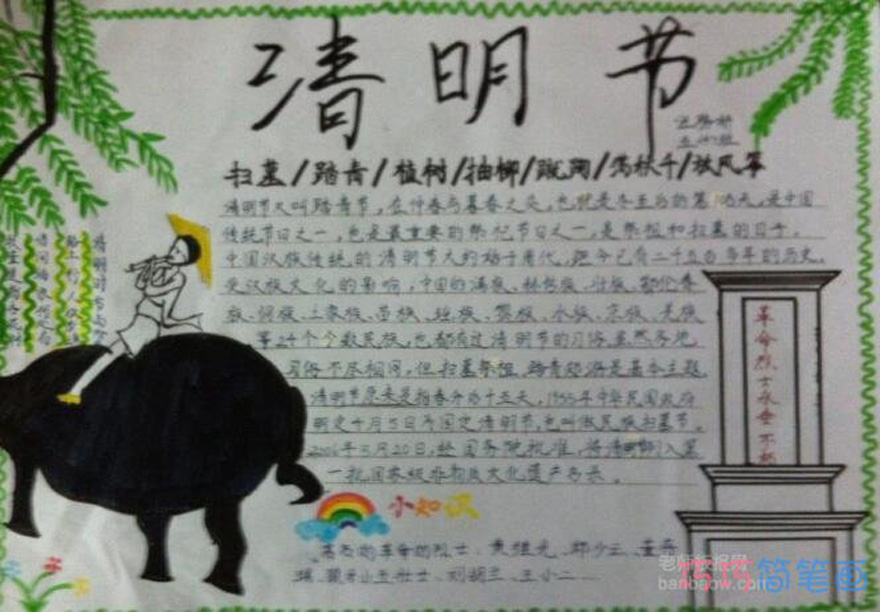 清明节
扫墓/踏青/植树/抽柳/蹴踘/荡秋千/放风筝
清明节又叫踏青节，在仲春与暮春之交，也就是冬至后的第105天，是中国
传统节日之一，也是最重要的祭祀节日之一，是祭祖和扫墓的日子。
中国汉族传统的清明节大约始于周代，距今已有二千五百多年的历史。
受汉族文化的影响，中国的满族、赫哲族、壮族、鄂伦春
族、侗族、土家族、苗族、瑶族、黎族、水族、京族、羌族
等24个少数民族，也都有过清明节的习俗。虽然各地
习俗不尽相同，但扫墓祭祖、踏青郊游是基本主题
清明节原来是指春分后十五天，1935年中华民国政府
明定4月5日为国定清明节，也叫做民族扫墓节。
2006年5月20日，经国务院批准，将清明节列入第
一批国家级非物质文化遗产名录。
清明时节雨
路上行人欲
革命烈士永垂不朽
小知识
革命的烈士、黄继光、邱少云、董存
瑞、狼牙山五壮士、刘胡兰、王小二……
老师板报网
banbaow.com
巧巧简笔画